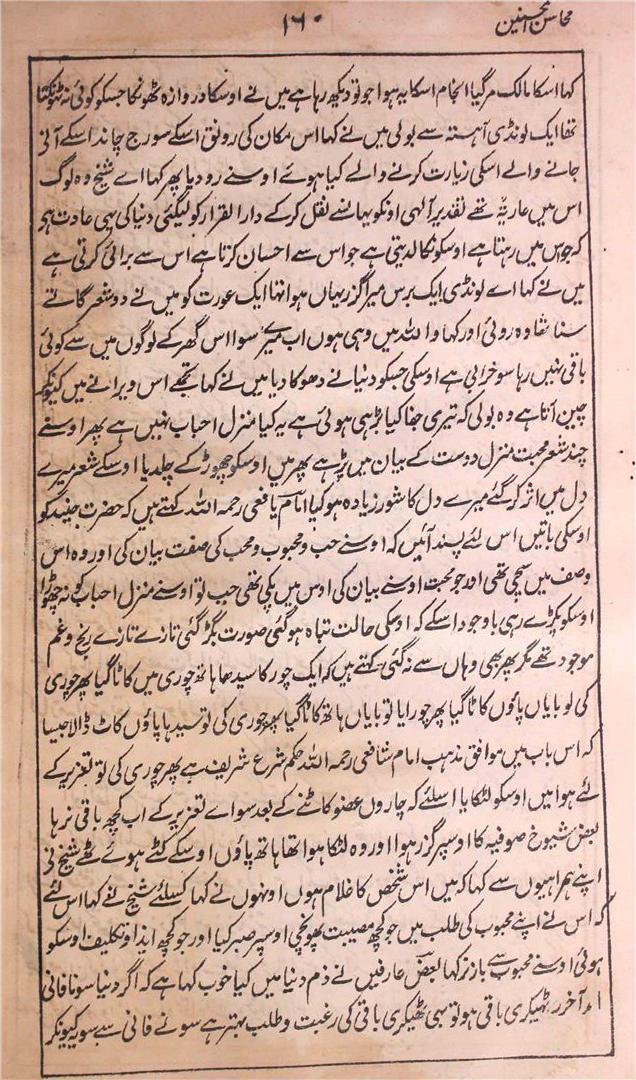 محاسن المحسنین
۱۶۰
کہا اسکا مالک مرگیا انجام اسکا یہ ہوا جو تو دیکھ رہا ہے میں نے اوسکا دروازہ ٹھونکا جسکو کوئی نہ ٹھونکتا
تھا ایک لونڈی آہستہ سے بولی میں نے کہا اس مکان کی رونق اسکے سورج چاند اسکے آنی
جانے والے اسکی زیارت کرنے والے کیا ہوئے اوسنے رو دیا پھر کہا اے شیخ وہ لوگ
اس میں عاریۃً تھے تقدیر آلہی اونکو یہانسے نقل کرکے دار القرار کو لیگئی دنیا کی یہی عادت ہو
کہ جو اس میں رہتا ہے اوسکو نکالدیتی ہے جو اس سے احسان کرتا ہے اس سے برائی کرتی ہے
میں نے کہا اے لونڈی ایک برس میرا گزر یہاں ہوا تھا ایک عورت کو میں نے دو شعر گاتے
سنا تھا وہ روئی اور کہا واللہ میں وہی ہوں اب میرے سوا اس گھر کے لوگوں میں سے کوئی
باقی نہیں رہا سو خرابی ہے اوسکی جسکو دنیا نے دھوکا دیا میں نے کہا تجھے اس ویرانے میں کیونکر
چین آتا ہے وہ بولی کہ تیری جفا کیا بڑہی ہوئی ہے یہ کیا منزل احباب نہیں ہے پھر اوسنے
چند شعر محبت منزل دوست کے بیان میں پڑہے پھر میں اوسکو چھوڑ کے چلدیا اوسکے شعر میرے
دل میں اثر کر گئے میرے دل کا شور زیادہ ہو گیا امام یافعی رحمہ اللہ کہتے ہیں کہ حضرت جنید کو
اوسکی باتیں اس لئے پسند آئیں کہ اوسنے حب و محبوب و محب کی صفت بیان کی اور وہ اس
وصف میں سچی تھی اور جو محبت اوسنے بیان کی اوس میں پکی تھی جب تو اوسنے منزل احباب کو نہ چھوڑا
اوسکو پکڑے رہی باوجود اسکے کہ اوسکی حالت تباہ ہو گئی صورت بگڑ گئی تازے تازے رنج و غم
موجود تھے مگر پھر بھی وہاں سے نہ گئی کہتے ہیں کہ ایک چور کا سیدھا ہاتھ چوری میں کاٹا گیا پھر چوری
کی تو بایاں پاؤں کاٹا گیا پھر چورایا تو بایاں ہاتھ کاٹا گیا پھر چوری کی تو سیدہا پاؤں کاٹ ڈالا جیسا
کہ اس باب میں موافق مذہب امام شافعی رحمہ اللہ حکم شرع شریف ہے پھر چوری کی تو تعزیر کے
لئے ہوا میں اوسکو لٹکایا اسلئے کہ چاروں عضو کاٹنے کے بعد سوائے تعزیر کے اب کچھ باقی نرہا
بعض شیوخ صوفیہ کا اوسپر گزر ہوا اور وہ لٹکا ہوا تھا ہاتھ پاؤں اوسکے کٹے ہوئے تھے شیخ نی
اپنے ہمراہیوں سے کہا کہ میں اس شخص کا غلام ہوں اونہوں نے کہا کسلئے شیخ نے کہا اس لئے
کہ اس نے اپنے محبوب کی طلب میں جو کچھ مصیبت پھونچی اوسپر صبر کیا اور جو کچھ ایذا و تکلیف اوسکو
ہوئی اوسنے محبوب سے باز نرکہا بعض عارفین نے ذم دنیا میں کیا خوب کہا ہے کہ اگر دنیا سونا فانی
اور آخرت ٹھیکری باقی ہو تو بہی ٹھیکری باقی کی رغبت و طلب بہتر ہے سونے فانی سے سو کیونکر